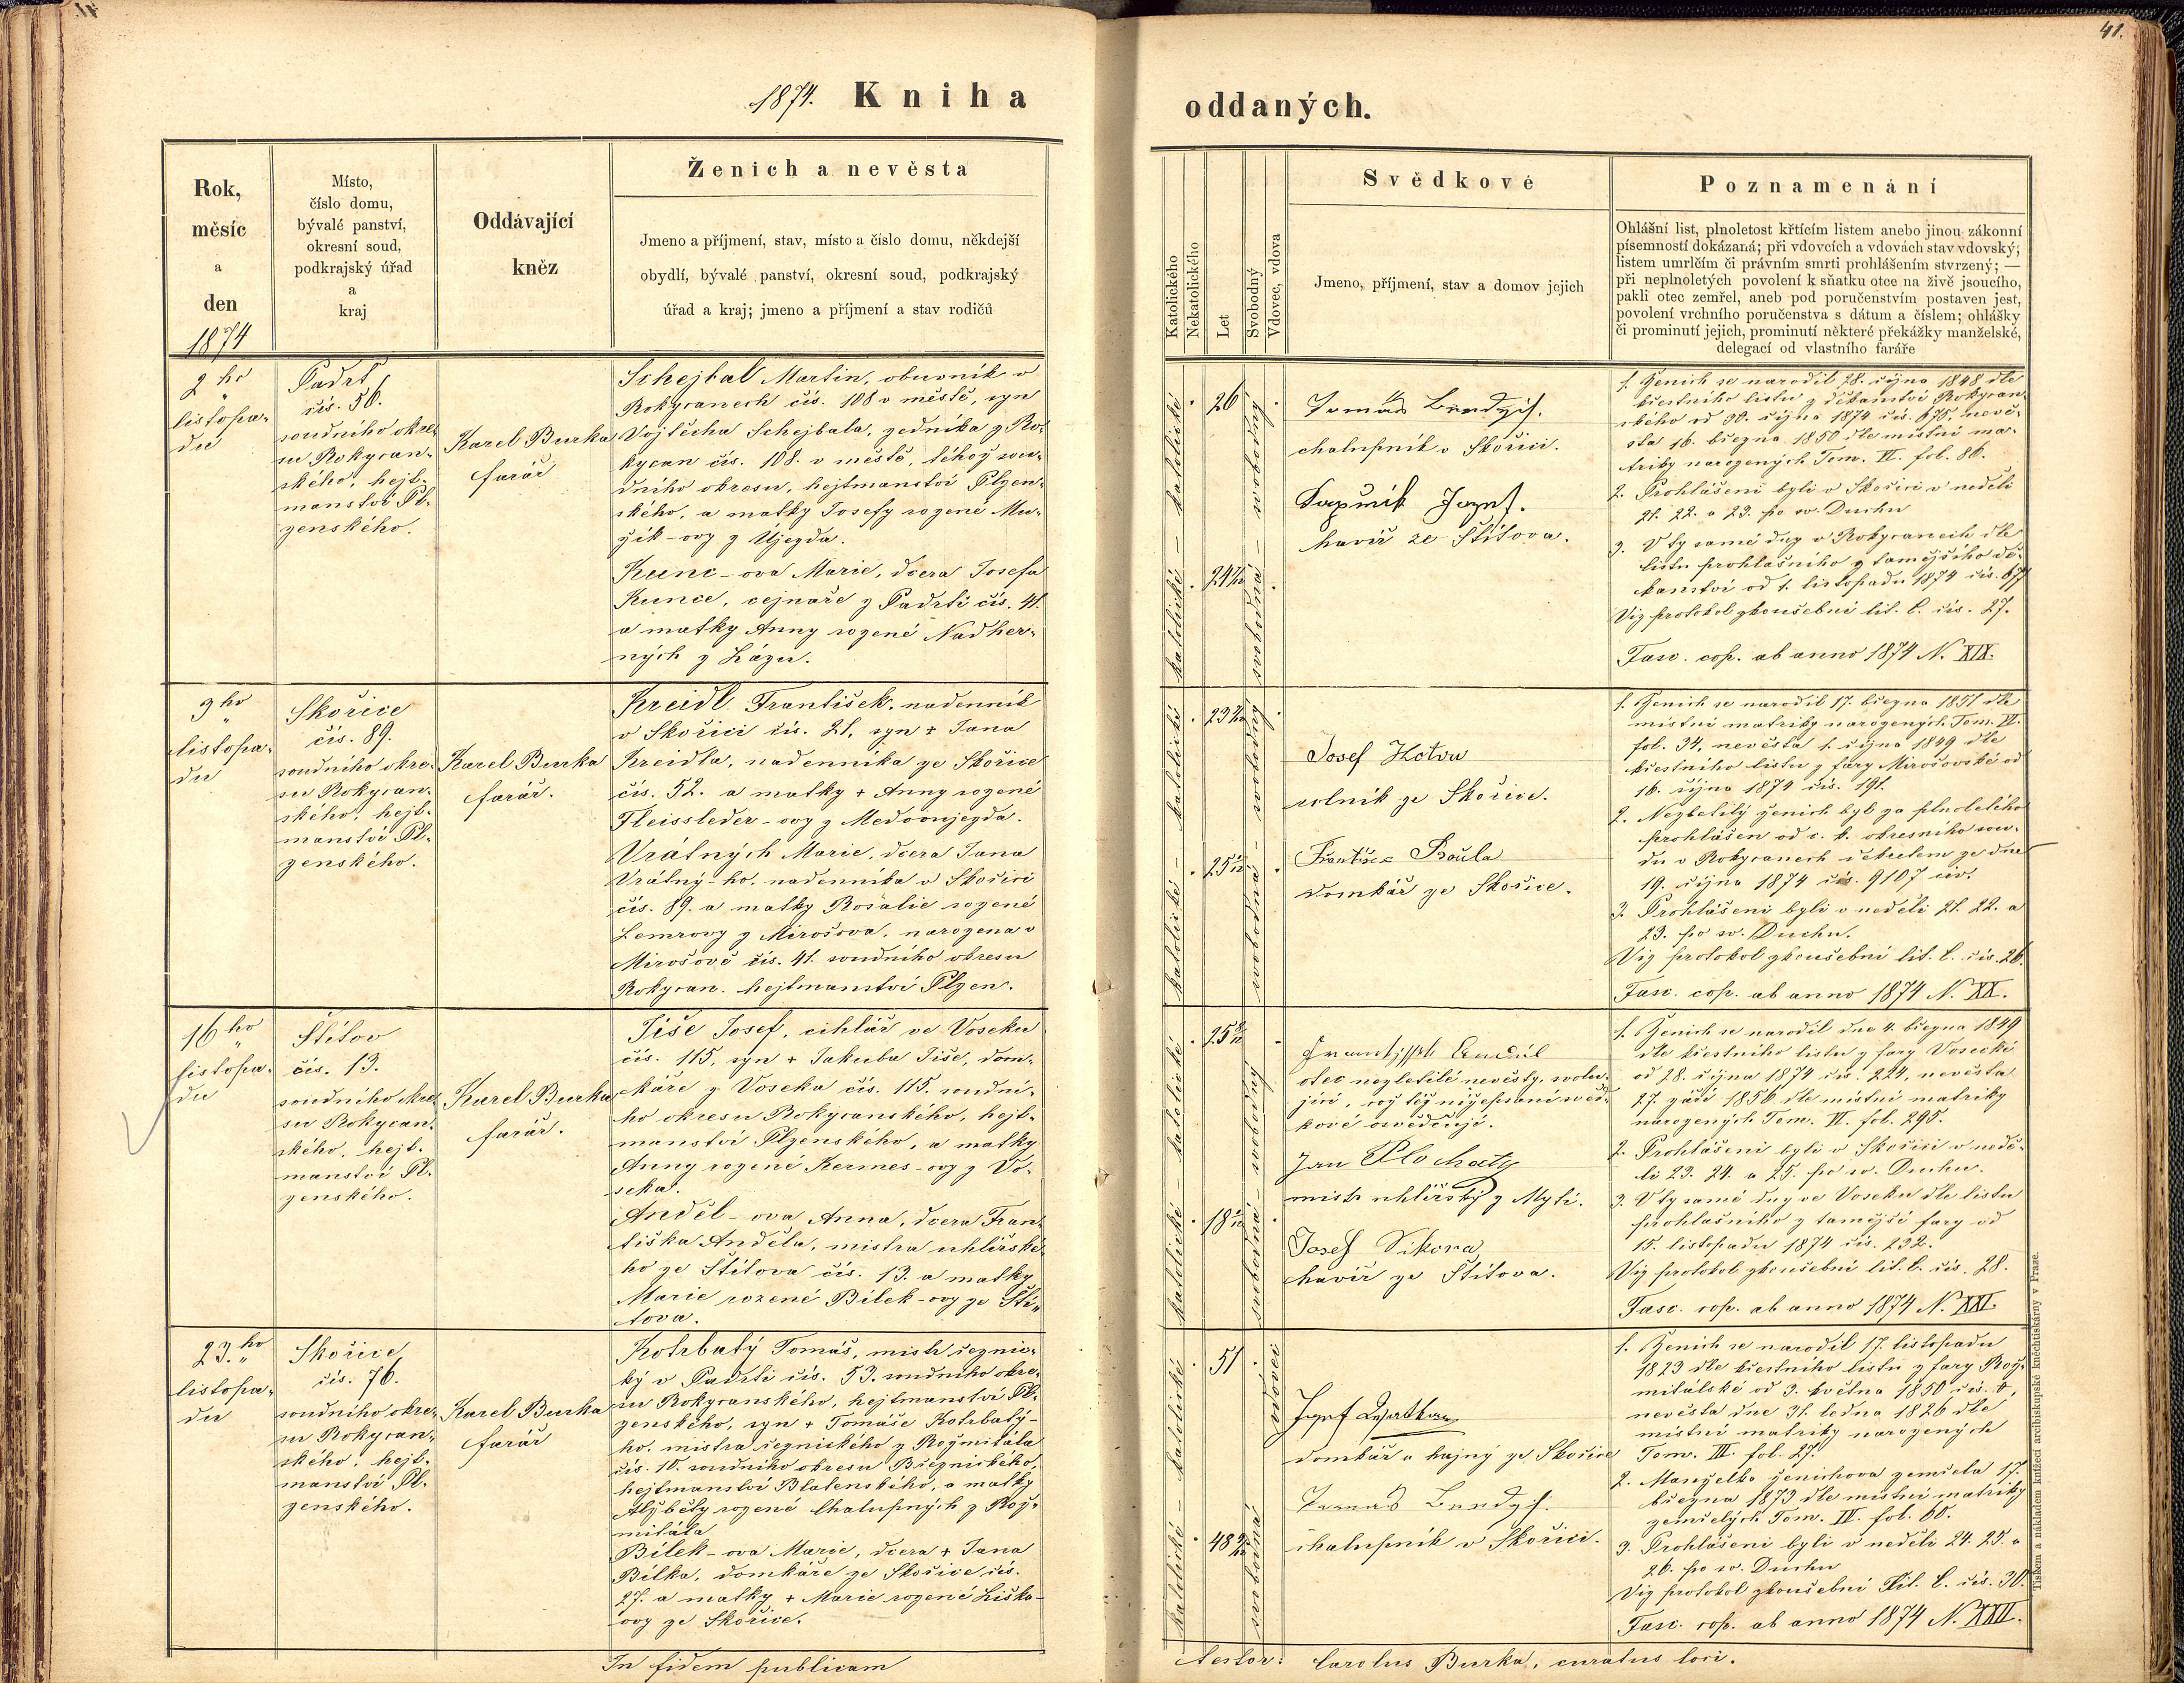 41.
1874. Kniha
oddaných.
Rok,
měsíc
a
den
1874
Místo,
číslo domu,
bývalé panství,
okresní soud,
podkrajský úřad
a
kraj
Oddávající
kněz
Ženich a nevěsta
Jmeno a příjmení, stav, místo a číslo domu, někdejší
obydlí, bývalé panství, okresní soud, podkrajský
úřad a kraj; jmeno a příjmení a stav rodičů
Katolického
Nekatolického
Let
Svobodný
Vdovec, vdova
Svědkové
Jmeno, příjmení, stav a domov jejich
Poznamenání
Ohlášní list, plnoletost křtícím listem anebo jinou zákonní
písemností dokázaná; při vdovcích a vdovách stav vdovský,
listem umrlčím či právním smrti prohlášením stvrzený; —
při neplnoletých povolení k sňatku otce na živě jsoucího,
pakli otec zemřel, aneb pod poručenstvím postaven jest,
povolení vrchního poručenstva s dátum a číslem; ohlášky
či prominutí jejich, prominutí některé překážky manželské,
delegací od vlastního faráře
2ho
listopa-
du
Padrť
čís. 56.
soudního okre-
su Rokycan-
ského, hejt-
manství Pl-
zenského.
Karel Burka
farář
Schejbal Martin, obuvník v
Rokycanech čís. 108 v městě, syn
Vojtěcha Schejbala, zedníka z Ro-
kycan čís. 108. v městě, téhož sou-
dního okresu, hejtmanství Plzen-
ského, a matky Josefy rozené Mu-
žík-ovy z Újezda.
Kunc-ova Marie, dcera Josefa
Kunce, cejnaře z Padrtě čís. 41.
a matky Anny rozené Nadher-
ných z Lázu.
katolické - katolické
26
24
svobodný
svobodná
Tomáš
chalupník v Skořici.
Josef.
havíř ze Štítova.
1. Ženich se narodil 28. října 1848 dle
křestního listu z děkanství Rokycan-
ského od 30. října 1874 čís. 675, nevě-
sta 16. března 1850 dle místní ma-
triky narozených Tom. VI. fol. 86.
2. Prohlášeni byli v Skořici v neděli
21. 22. a 23. po sv. Duchu
3. V ty samé dny v Rokycanech dle
listu prohlašního z tamějšího dě-
kanství od 1. listopadu 1874 čís. 677
Viz protokol zkoušební lit. C. čís. 27.
Fasc. cop. ab anno 1874 N. XIX.
9ho
listopa-
du
Skořice
čís. 89.
soudního okre-
su Rokycan-
ského, hejt-
manství Pl-
zenského.
Karel Burka
farář.
Kreidl František, nadenník
v Skořici čís. 21, syn + Jana
Kreidla, nadenníka ze Skořice
čís. 52. a matky + Anny rozené
Fleissleder-ovy z Medoonjezda.
Vrátných Marie, dcera Jana
Vrátný-ho, nadenníka v Skořici
čís. 89. a matky Rosalie rozené
Lemrovy z Mirošova, narozena v
Mirošově čís. 41. soudního okresu
Rokycan. hejtmanství Plzen.
katolické - katolické
23
25
svobodný
svobodná
Josef Hotva
rolník ze Skořice.
domkář ze Skořice.
1. Ženich se narodil 17. března 1851 dle
místní matriky narozených Tom. VI.
fol. 34, nevěsta 1. října 1849 dle
křestního listu z fary Mirošovské od
16. října 1874 čís. 191.
2. Nezletilý ženich byl za plnoletého
prohlášen od c. k. okresního sou-
du v Rokycanech dekretem ze dne
19. října 1874 čís. 9107 civ.
3. Prohlášeni byli v neděli 21. 22. a
23. po sv. Duchu.
Viz protokol zkoušební lit. C. čís. 26.
Fasc. cop. ab anno 1874 N. XX.
16ho
listopa-
du
Štítov
čís. 13.
soudního okre-
su Rokycan-
ského, hejt-
manství Pl-
zenského.
Karel Burka
farář.
Tiše Josef, cihlář ve Voseku
čís. 115, syn + Jakuba Tiše, dom-
káře z Voseka čís. 115. soudní-
ho okresu Rokycanského, hejt-
manství Plzenského, a matky
Anny rozené Kermes-ovy z Vo-
seka.
Anděl-ova Anna, dcera Fran-
tiška Anděla, mistra uhlířské-
ho ze Štítova čís. 13. a matky
Marie rozené Bílek-ovy ze Ští-
tova.
katolické - katolické
25
18
svobodný
svobodná
otec nezletilé nevěsty, svolu-
jící, což též nížepsaní svěd-
kové osvědčují.
Jan Plochatý
mistr uhlířský z Mýti.
Josef Sikora
havíř ze Štítova.
1. Ženich se narodil dne 4. března 1849
dle křestního listu z fary Vosecké
od 28. října 1874 čís. 224, nevěsta
27. září 1856 dle místní matriky
narozených Tom. VI. fol. 295.
2. Prohlášeni byli v Skořici v nedě-
li 23. 24. a 25. po sv. Duchu.
3. V ty samé dny ve Voseku dle listu
prohlašního z tamější fary od
15. listopadu 1874 čís. 232.
Viz protokol zkoušební lit. C. čís. 28.
Fasc. cop. ab anno 1874 N. XXI.
23.ho
listopa-
du
Skořice
čís. 76.
soudního okre-
su Rokycan-
ského, hejt-
manství Pl-
zenského.
Karel Burka
farář
Kotrbatý Tomáš, mistr řeznic-
ký v Padrti čís. 53. soudního okre-
su Rokycanského, hejtmanství Pl-
zenského, syn + Tomáše Kotrbatý-
ho, mistra řeznického z Rožmitála
čís. 10. soudního okresu Březnického,
hejtmanství Blatenského, a matky
Alžběty rozené Chalupných z Rož-
mitála
Bílek-ova Marie, dcera + Jana
Bílka, domkáře ze Skořice čís.
27. a matky + Marie rozené Liška-
ovy ze Skořice.
katolické - katolické
51
48
vdovec
svobodná
Josef
domkář a hajný ze Skořice
Tomáš
chalupník v Skořici.
1. Ženich se narodil 17. listopadu
1823 dle křestního listu z fary Rož-
mitálské od 3. května 1850 čís.
nevěsta dne 31. ledna 1826 dle
místní matriky narozených
Tom. III. fol. 27.
2. Manželka ženichova zemřela 17.
března 1873 dle místní matriky
zemřelých Tom. IV. fol. 60.
3. Prohlášeni byli v neděli 24. 25. a
26. po sv. Duchu
Viz protokol zkoušební lit. C. čís. 30.
Fasc. cop. ab anno 1874 N. XXII.
Tiskem a nákladem knížecí arcibiskupské kněhtiskárny v Praze.
In fidem publicam
testor: Carolus Burka, curatus loci.